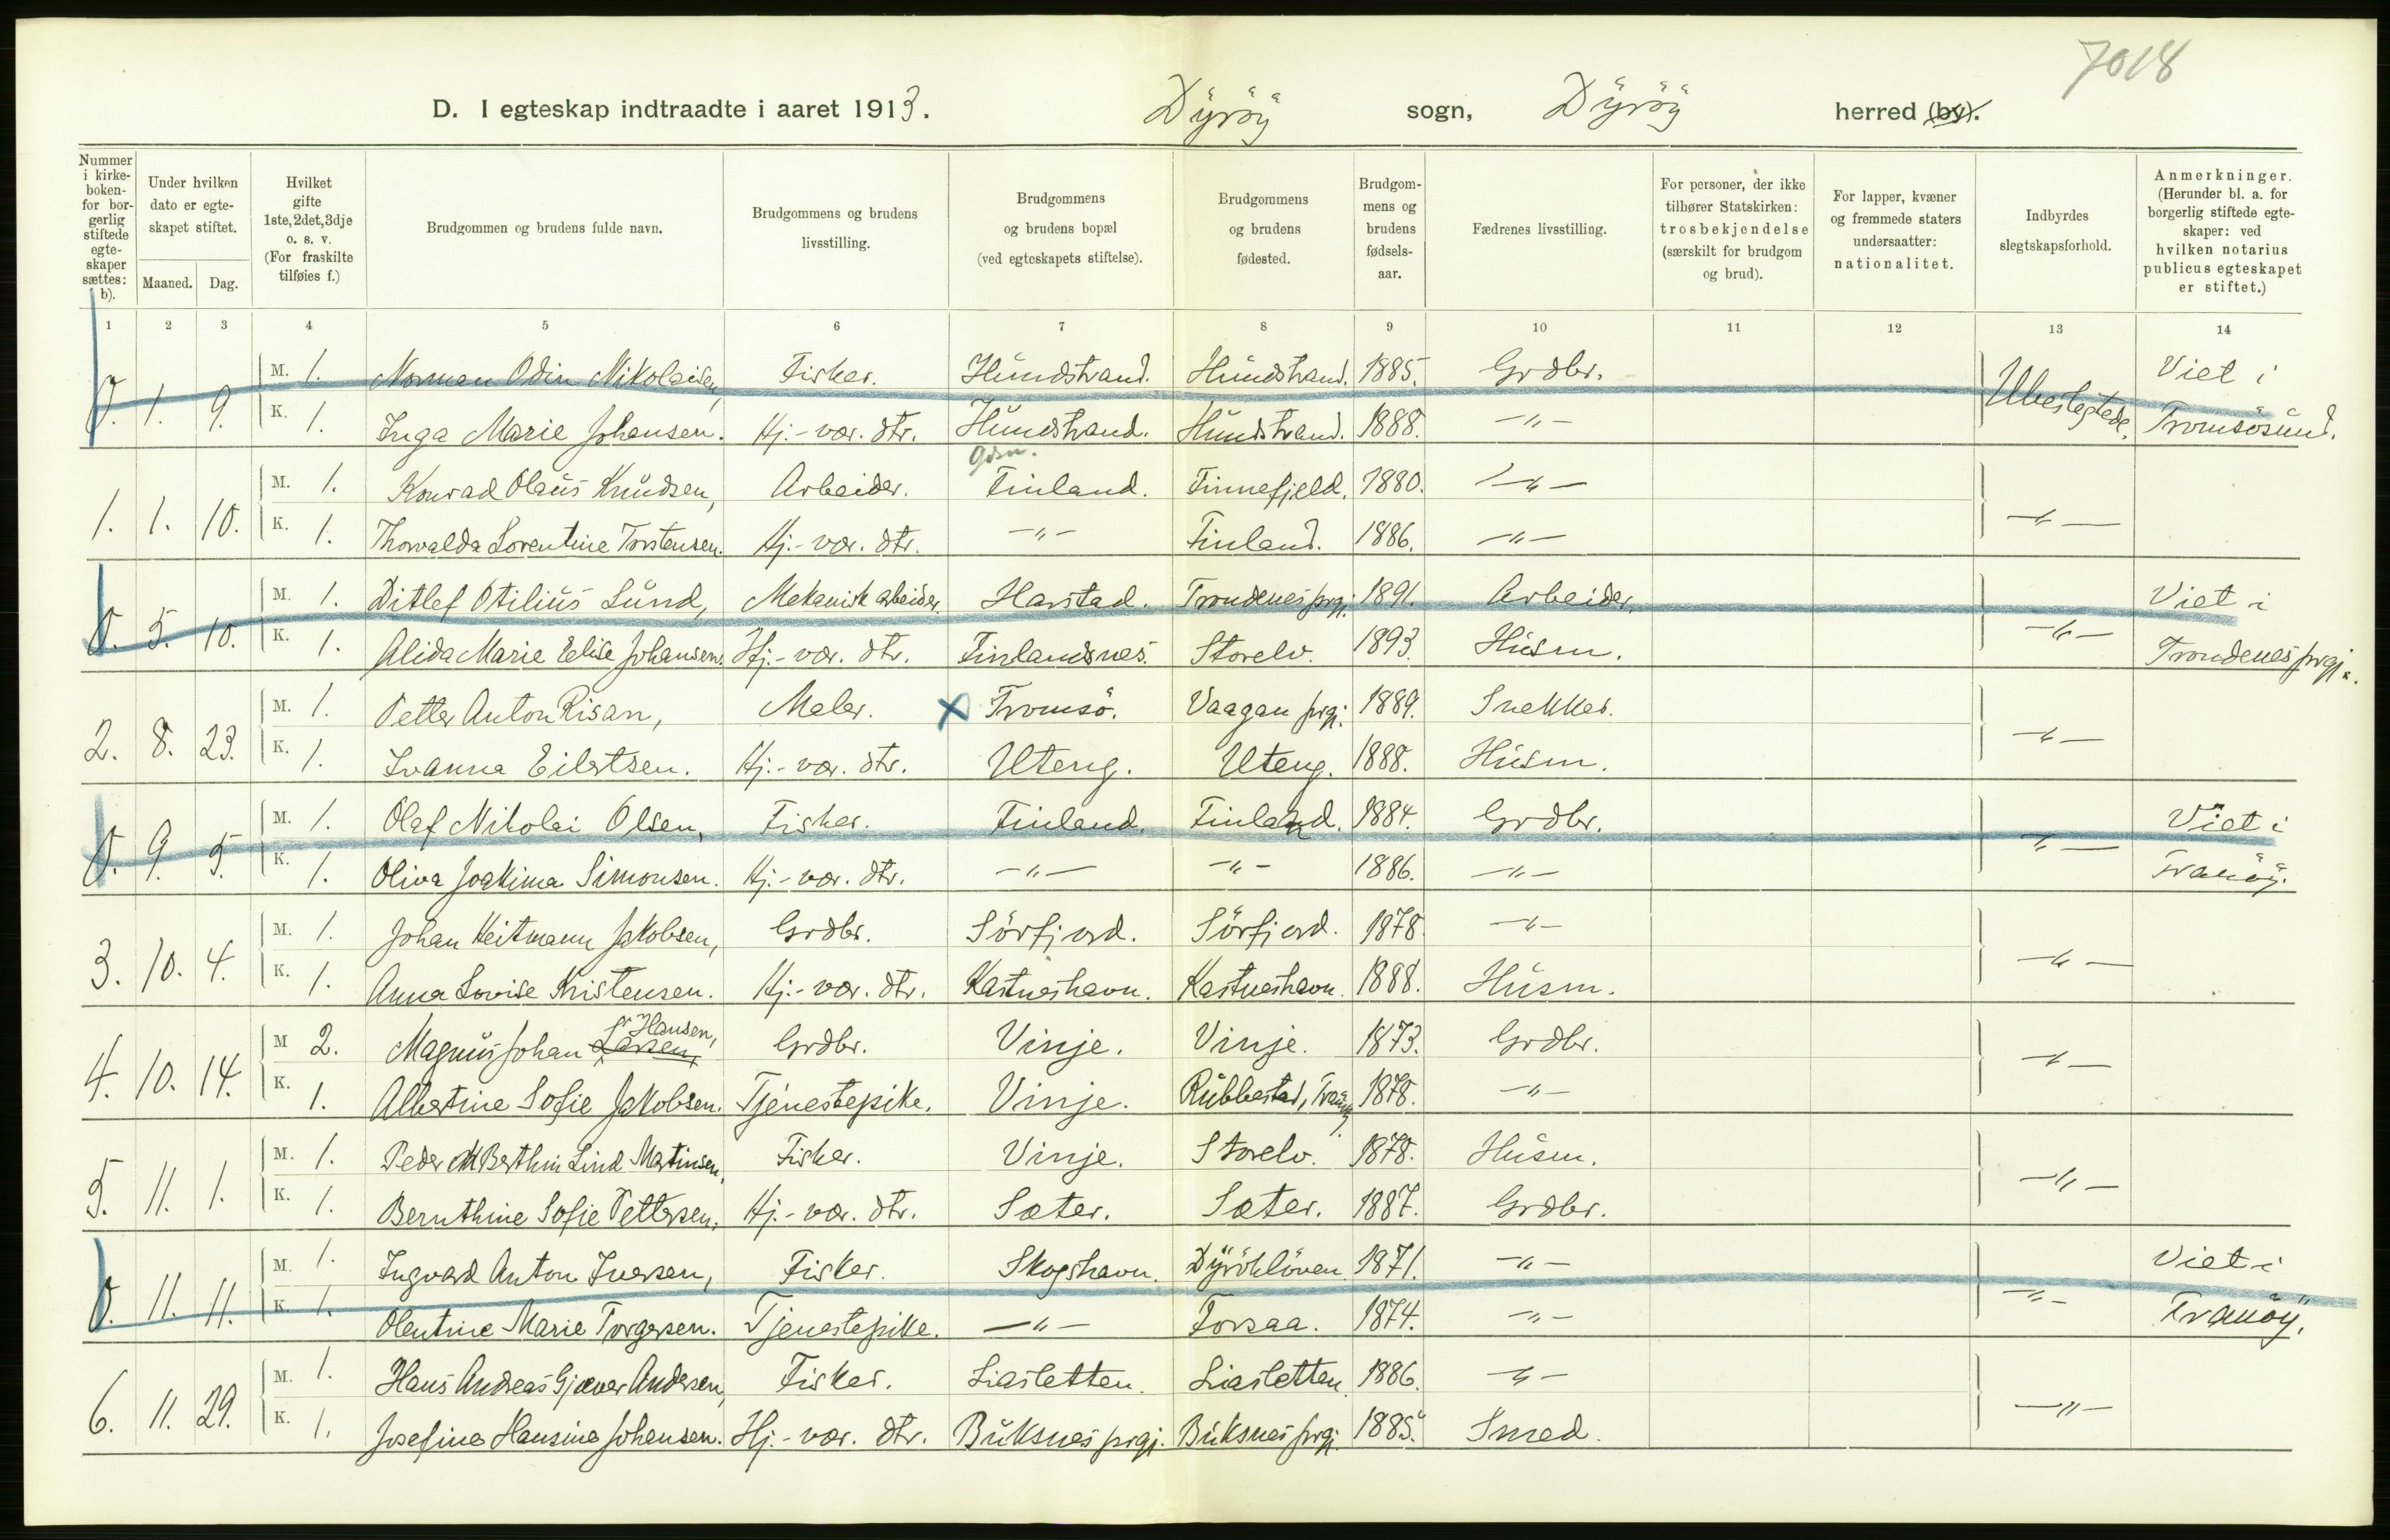 7018
D. I egteskap indtraadte i aaret 1913. Dyröy sogn, Dyröy herred (by).
Nummer i kirke-boken- for bor-gerlig stiftede egte-skaper sættes: b).
Under hvilken dato er egte-skapet stiftet.
Maaned. Dag.
Hvilket gifte 1ste, 2det, 3dje o. s. v. (For fraskilte tilføies f.)
Brudgommen og brudens fulde navn.
Brudgommens og brudens livsstilling.
Brudgommens og brudens bopæl (ved egteskapets stiftelse).
Brudgommens og brudens fødested.
Brudgom-mens og brudens fødsels-aar.
Fædrenes livsstilling.
For personer, der ikke tilhører Statskirken: trosbekjendelse (særskilt for brudgom og brud).
For lapper, kvæner og fremmede staters undersaatter: nationalitet.
Indbyrdes slegtskapsforhold.
Anmerkninger. (Herunder bl. a. for borgerlig stiftede egte-skaper: ved hvilken notarius publicus egteskapet er stiftet.)
1 2 3 4 5 6 7 8 9 10 11 12 13 14
M. 1. Norman Odin Nikolaisen, Fisker. Hundstrand. Hundstrand. 1885. Grdbr. Viet i
0. 1. 9. K. 1. Inga Marie Johansen. Hj.-vær. dtr. Hundstrand. Hundstrand. 1888. —"— Ubeslegtede. Tromsøsund.
Gdn.
M. 1. Konrad Olaus Knudsen, Arbeider. Finland. Finnefjeld. 1880. —"—
1. 1. 10. K. 1. Thorvalda Lorentine Torstensen. Hj.-vær. dtr. —"— Finland. 1886. —"— —"—
M. 1. Ditlef Otilius Lund, Mekanisk arbeider. Harstad. Trondenes prgj. 1891. Arbeider. Viet i
0. 5. 10. K. 1. Alida Marie Elise Johansen. Hj.-vær. dtr. Finlandsnes. Storelv. 1893. Husm. —"— Trondenes prgj.
M. 1. Petter Anton Risan, Maler. x Tromsö. Vaagan prgj. 1889. Snekker.
2. 8. 23. K. 1. Ivanna Eilertsen. Hj.-vær. dtr. Uteng. Uteng. 1888. Husm. —"—
M. 1. Olaf Nikolai Olsen, Fisker. Finland. Finland. 1884. Grdbr. Viet i
0. 9. 5. K. 1. Oliva Joakima Simonsen. Hj.-vær. dtr. —"— —"— 1886. —"— —"— Tranöy.
M. 1. Johan Heitmann Jakobsen, Grdbr. Sörfjord. Sörfjord. 1878. —"—
3. 10. 4. K. 1. Anna Lovise Kristensen. Hj.-vær. dtr. Kastneshavn. Kastneshavn. 1888. Husm. —"—
M 2. Magnus Johan Larsen, Hansen, Grdbr. Vinje. Vinje. 1873. Grdbr.
4. 10. 14. K. 1. Albertine Sofie Jakobsen. Tjenestepike. Vinje. Rubbestad, Tranöy. 1878. —"— —"—
M. 1. Peder M Berthin Lind Martinsen, Fisker. Vinje. Storelv. 1878. Husm.
5. 11. 1. K. 1. Bernthine Sofie Pettersen. Hj.-vær. dtr. Sæter. Sæter. 1887. Grdbr. —"—
M. 1. Ingvard Anton Iversen, Fisker. Skogshavn. Dyröklöven. 1871. —"— Viet i
0. 11. 11. K. 1. Olentine Marie Torgersen. Tjenestepike. —"— Forsaa. 1874. —"— —"— Tranöy.
M. 1. Hans Andreas Gjæver Andersen, Fisker. Liasletten. Liasletten. 1886. —"—
6. 11. 29. K. 1. Josefine Hansine Johansen. Hj.-vær. dtr. Buksnes prgj. Buksnes prgj. 1885. Smed. —"—